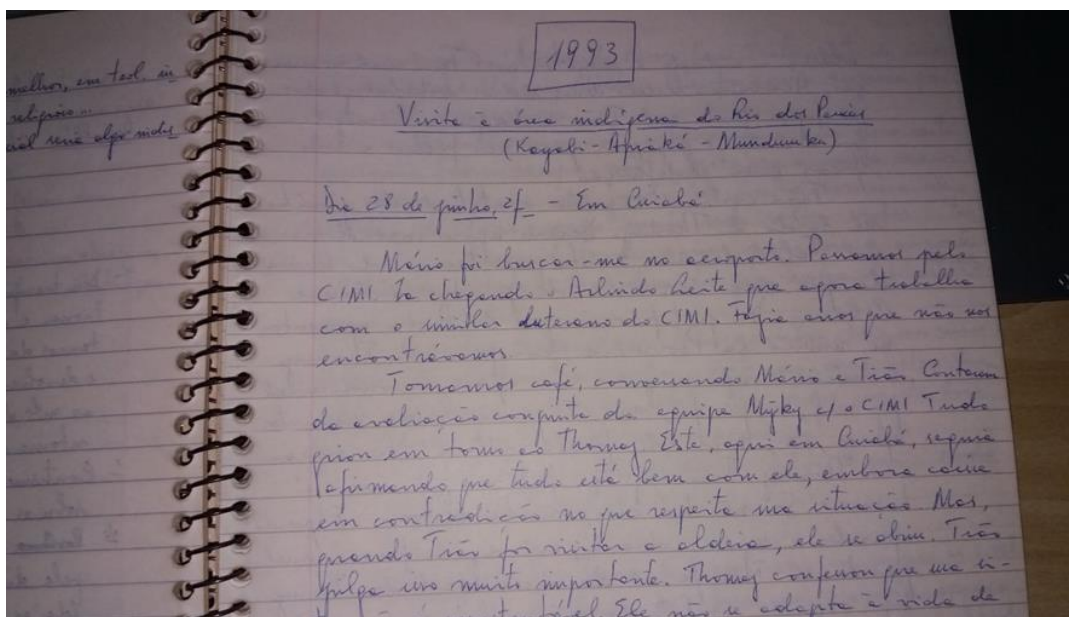 melhor, em teol. in
religião...
cial seria algo
1993
Visita à área indígena do Rio dos Peixes
(Kayabi - Apiaká - Munduruku)
Dia 28 de junho, 2f - Em Cuiabá
Mário foi buscar-me no aeroporto. Passamos pelo
CIMI. Ia chegando o Arlindo Leite que agora trabalha
com o similar luterano do CIMI. Fazia anos que não nos
encontrávamos
Tomamos café, conversando Mário e Tião. Contaram
da avaliação conjunta da equipe Mỹky c/ o CIMI. Tudo
girou em torno ao Thomaz. Este, aqui em Cuiabá, seguia
afirmando que tudo está bem com ele, embora caísse
em contradição no que respeita sua situação. Mas,
quando Tião foi visitar a aldeia, ele se abriu. Tião
julga isso muito importante. Thomaz confessou que sua si-
Ele não se adapta à vida de